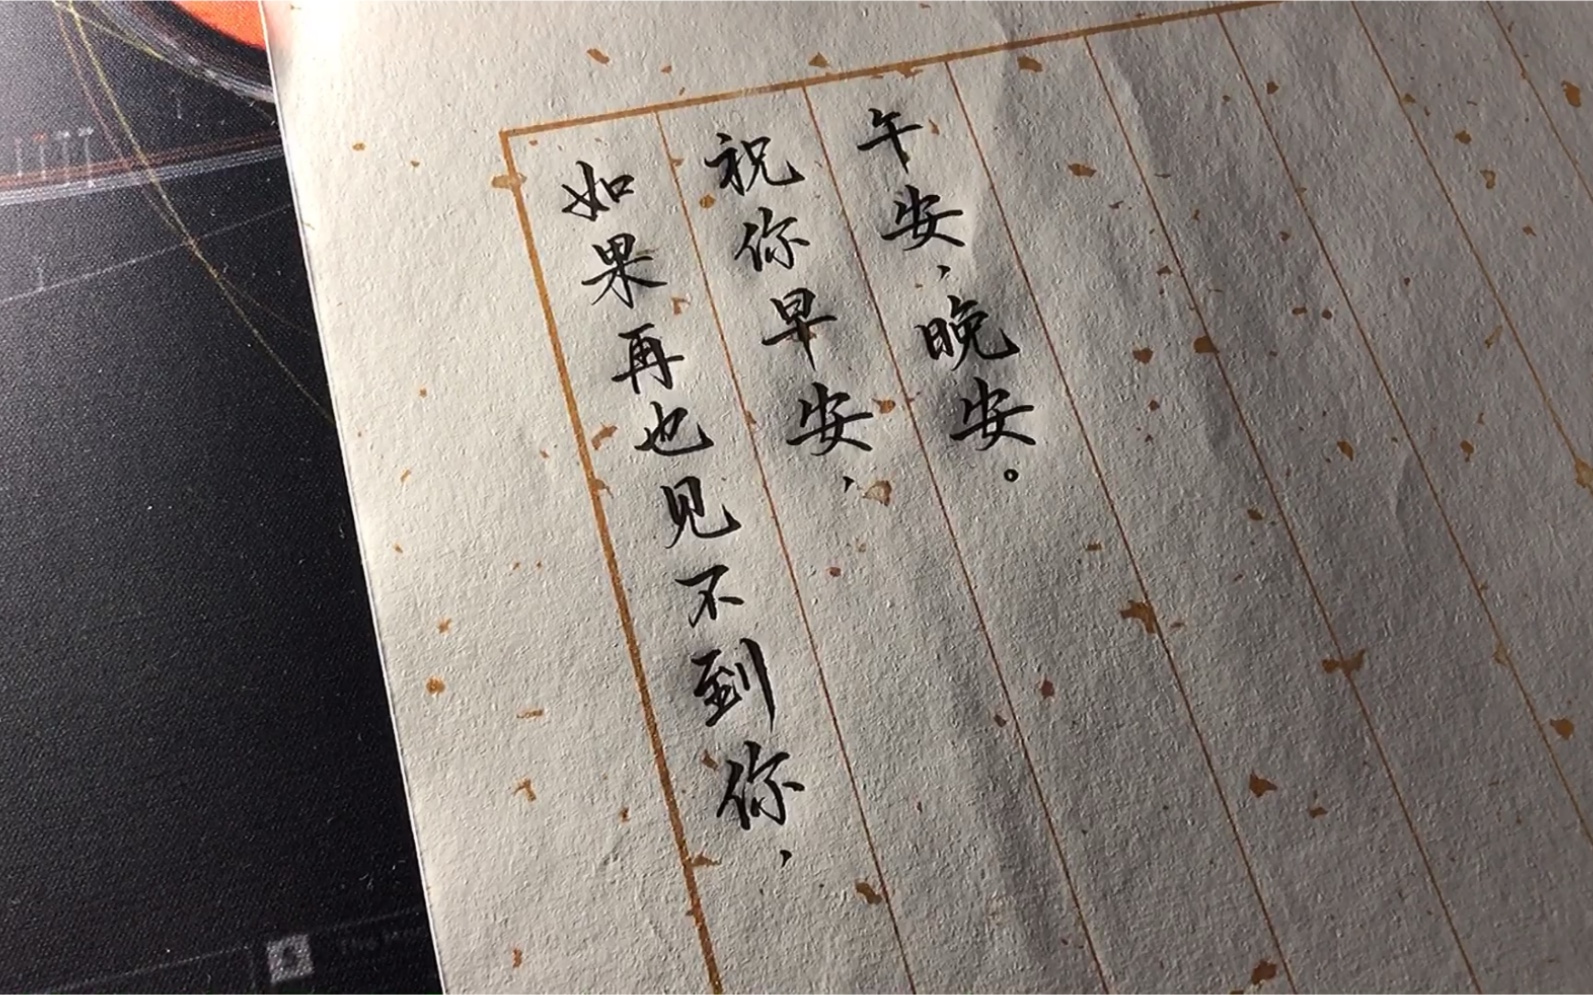 如果再也见不到你，
祝你早安，
午安，晚安。